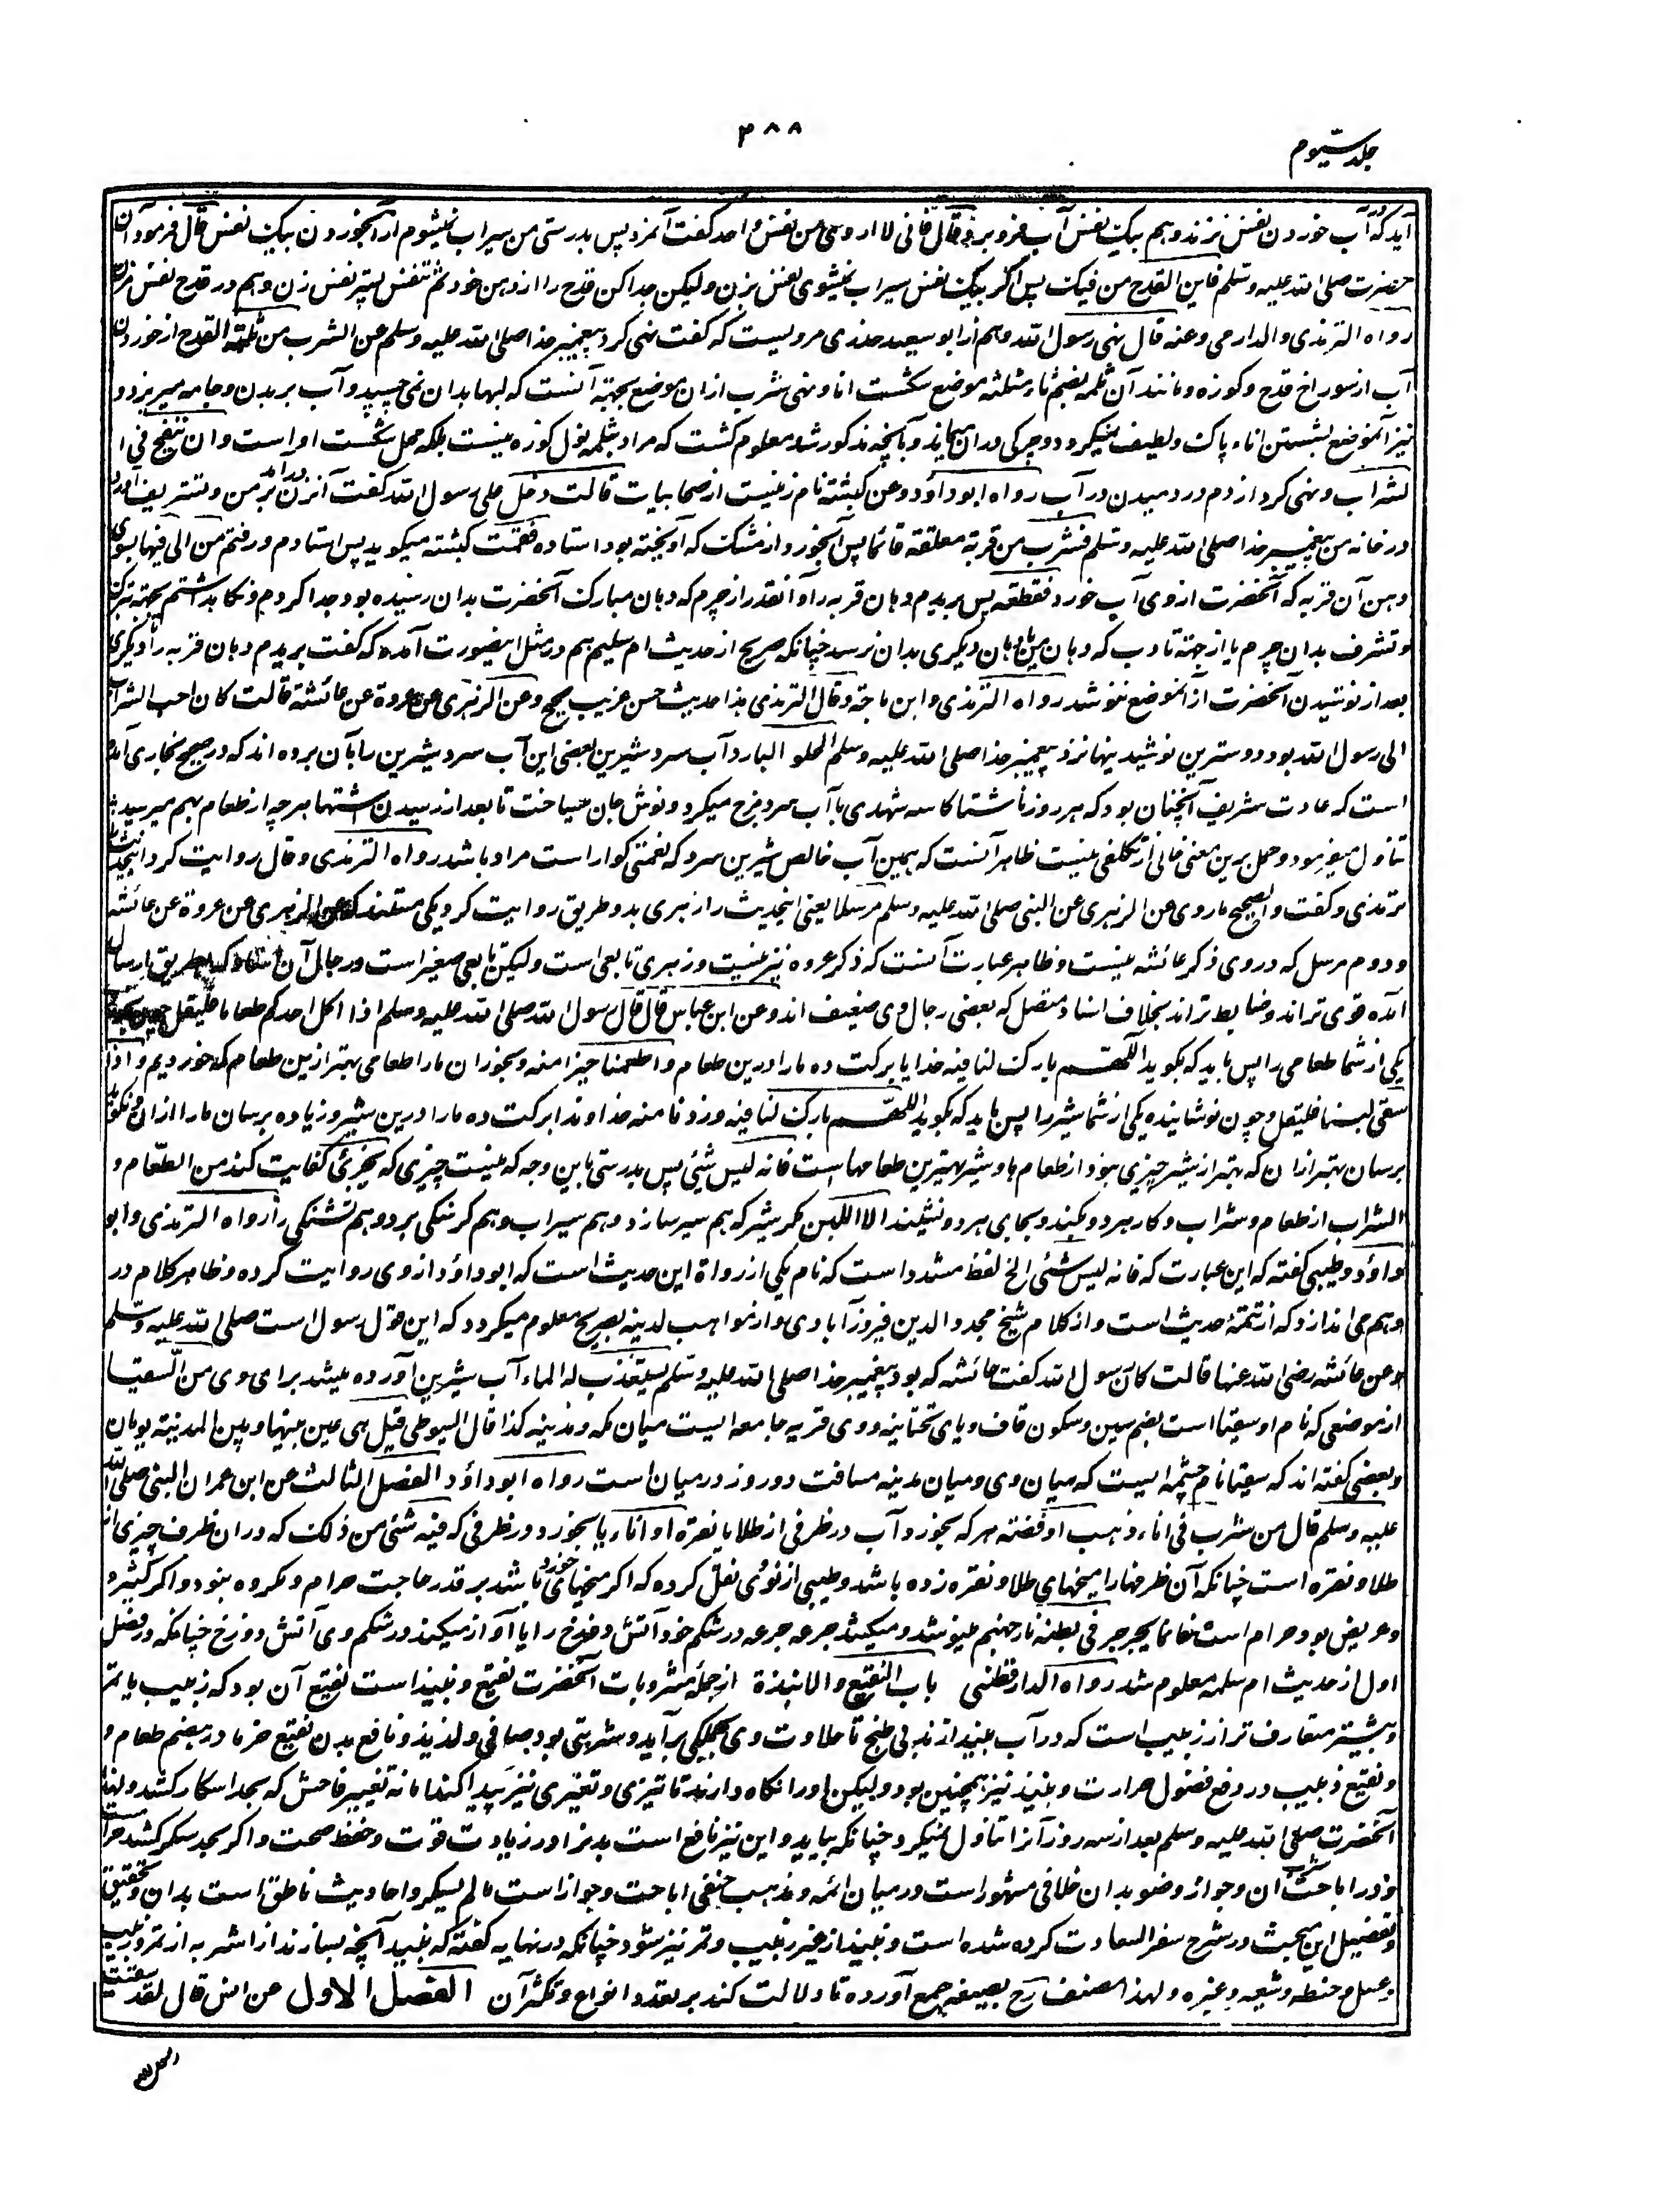 جلد سیوم
۳۸۸
آید که در آب خوردن نفس نزند و هم بیک نفس آب فرو برد قال فانی لا اروی من نفس واحد گفت آنمرد پس بدرستی من سیراب نمیشوم از آبخوردن بیک نفس قال فرمود آن
حضرت صلی الله علیه وسلم فابن القدح من فیک پس اگر بیک نفس سیراب نمیشوی نفس بزن ولیکن جدا کن قدح را از دهن خود ثم تنفس پستر نفس زن و هم در قدح نفس مزن
رواه الترمذی والدارمی وعنه قال نهی رسول الله و هم از ابو سعید خدری مرویست که گفت نهی کرد پیغمبر خدا صلی الله علیه وسلم عن الشرب من ثلمة القدح از خوردن
آب از سوراخ قدح و کوزه و مانند آن ثلمه بضم ثاء مثلثه موضع شکست انا و نهی شرب ازان موضع بجهة آنست که لبها بدان نمی چسپد و آب بر بدن و جامه میریزد و
نیز آنموضع بشستن اناء پاک و لطیف نمیگردد و چرکی دران میماند و بآنچه مذکور شد معلوم گشت که مراد بثلمه نول کوزه نیست بلکه محل شکست او است وان ینفخ فی ا
لشراب و نهی کرد از دم در دمیدن در آب رواه ابو داؤد وعن کبشته نام زنیست از صحابیات قالت دخل علی رسول الله گفت آنزن در آمد بر من و تشریف آورد
در خانه من پیغمبر خدا صلی الله علیه وسلم فشرب من قربة معلقة قائما پس آبخورد از مشک که آویخته بود استاده فقمت کبشته میگوید پس استادم و رفتم من الی فیها بسوی
دهن آن قربه که آنحضرت ازوی آب خورد فقطعته پس بریدم دهان قربه را و آنقدر از چرم که دهان مبارک آنحضرت بدان رسیده بود جدا کردم و نگا بداشتم بجهة تبرک
و تشرف بدان چرم یا از جهة تادب که دهان من یا دهان دیگری بدان نرسد چنانکه صریح از حدیث ام سلیم هم در مثل اینصورت آمده که گفت بریدم دهان قربه را و دیگری
بعد از نوشیدن آنحضرت از آنموضع ننوشد رواه الترمذی وابن ماجة وقال الترمذی هذا حدیث حسن غریب صحیح وعن الزهری عن عروة عن عائشة قالت کان احب الشراب
الی رسول الله بود دوسترین نوشیدنیها نزد پیغمبر خدا صلی الله علیه وسلم الحلو البارد آب سرد شیرین بعضی این آب سرد شیرین را بآن برده اند که در صحیح بخاری آمده
است که عادت شریف آنچنان بود که هر روز ناشتا کاسه شهدی بآب سرد مزج میکرد و نوش جان میساخت تا بعد از رسیدن اشتها هرچه از طعام بهم میرسید
تناول میفرمود و حمل برین معنی خالی از تکلفی نیست ظاهر آنست که همین آب خالص شیرین سرد که نعمتی گوارا است مراد باشد رواه الترمذی وقال روایت کرد اینحدیث را
ترمذی و گفت والصحیح ما روی عن الزهری عن النبی صلی الله علیه وسلم مرسلا یعنی اینحدیث را زهری بدو طریق روایت کرد یکی مسند که عن الزهری عن عروة عن عائشه
و دوم مرسل که در وی ذکر عائشه نیست و ظاهر عبارت آنست که ذکر عروه نیز نیست و زهری تابعی است ولیکن تابعی صغیر است و رجال آن اسناد که بطریق ارسال
آمده قوی تر اند و ضابط تر اند بخلاف اسناد متصل که بعضی رجال وی ضعیف اند وعن ابن عباس قال قال رسول الله صلی الله علیه وسلم اذا اکل احدکم طعاما فلیقل
یکی از شما طعامی را پس باید که بگوید اللهم بارک لنا فیه خدایا برکت ده ما را درین طعام و اطعمنا خیرا منه و بخوران ما را طعامی بهتر ازین طعام که خوردیم و اذا
سقی لبنا فلیقل و چون نوشانیده یکی از شما شیر را پس باید که بگوید اللهم بارک لنا فیه وزدنا منه خداوندا برکت ده ما را درین شیر و زیاده برسان ما را ازان و نگوید
برسان بهتر ازان که بهتر از شیر چیزی نبود از طعام ها و شیر بهترین طعامها است فانه لیس شئ پس بدرستی باین وجه که نیست چیزی که یجزئ کفایت کند من الطعام و
الشراب از طعام و شراب و کار هر دو بکند و بجای هر دو نشیند الا اللبن مگر شیر که هم سیر سازد و هم سیراب و هم گرسنگی برد و هم تشنگی را رواه الترمذی وابو
داؤد و طیبی گفته که این عبارت که فانه لیس شئ الخ لفظ مسدد است که نام یکی از رواة این حدیث است که ابو داؤد از وی روایت کرده و ظاهر کلام در
وهم می اندازد که از تتمه حدیث است و از کلام شیخ مجد والدین فیروزآبادی و از مواهب لدنیه بصریح معلوم میگردد که این قول رسول است صلی الله علیه وسلم
وعن عائشه رضی الله عنها قالت کان رسول الله گفت عائشه که بود پیغمبر خدا صلی الله علیه وسلم یستعذب له الماء آب شیرین آورده میشد برای وی من السقیا
از موضعی که نام او سقیا است بضم سین و سکون قاف و یای تحتانیه و وی قریه جامعه ایست میان مکه و مدینه کذا قال السیوطی قیل هی عین بینها وبین المدینة یومان
و بعضی گفته اند که سقیا نام چشمه ایست که میان وی و میان مدینه مسافت دو روز درمیان است رواه ابو داؤد الفصل الثالث عن ابن عمر ان النبی صلی الله
علیه وسلم قال من شرب فی اناء ذهب او فضة هر که بخورد آب در ظرفی از طلا یا نقره او اناء یا بخورد در ظرفی که فیه شئ من ذلک که دران ظرف چیزی از
طلا و نقره است چنانکه آن ظرفها را میخهای طلا و نقره زده باشد و طیبی از نووی نقل کرده که اگر میخهای خورد باشد بر قدر حاجت حرام و مکروه نبود و اگر کثیر و
و عریض بود حرام است فانما یجرجر فی بطنه نار جهنم مینوشد و میکشد جرعه جرعه در شکم خود آتش دوزخ را یا آواز میکند در شکم وی آتش دوزخ چنانکه در فصل
اول از حدیث ام سلمه معلوم شد رواه الدارقطنی باب النقیع والانبذة از جمله مشروبات آنحضرت نقیع و نبیذ است نقیع آن بود که زبیب یا تمر
و بیشتر متعارف تر از زبیب است که در آب بیندازند بی طبخ تا حلاوت وی بمگی برآید و شربتی بود صافی و لذیذ و نافع بدن نقیع خرما در هضم طعام و
و نقیع زبیب در دفع فضول حرارت و نبیذ نیز همچنین بود ولیکن او را نگاه دارند تا تیزی و تغیری نیز پیدا کند اما نه تغییر فاحش که بحد اسکار کشد و لهذا
آنحضرت صلی الله علیه وسلم بعد از سه روز آنرا تناول نمیکرد چنانکه بیاید و این نیز نافع است بدن را و زیادت قوت و حفظ صحت و اگر بحد سکر کشد حرام است
و در اباحت شرب آن و جواز وضو بدان خلافی مشهور است درمیان ائمه و مذهب حنفی اباحت و جواز است ما لم یسکر و احادیث ناطق است بدان و تحقیق
و تفصیل این مبحث در شرح سفر السعادت کرده شده است و نبیذ از غیر زبیب و تمر نیز شود چنانکه در نهایه گفته که نبیذ آنچه بسازند از اشربه از تمر و زبیب
و عسل و حنطه و شعیر و غیره و لهذا مصنف رح بصیغه جمع آورده تا دلالت کند بر تعدد انواع و تکثر آن الفصل الاول عن انس قال لقد سقیت
رسول الله